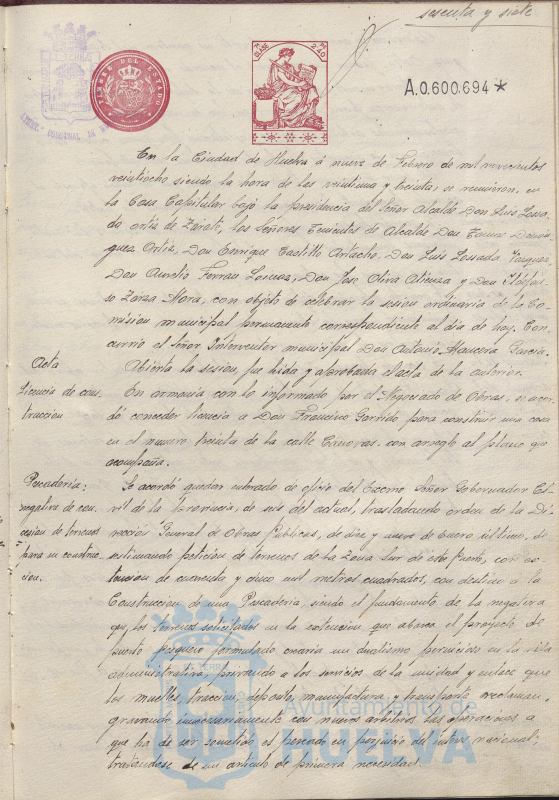 sesenta y siete
TIMBRE DEL ESTADO
CLASE
2'40
A.0.600.694 *
En la Ciudad de Huelva á nueve de Febrero de mil novecientos
veintiocho siendo la hora de las veintiuna y treinta, se reunieron, en
la Casa Capitular bajo la presidencia del Señor Alcalde Don Luis Losa-
da Ortiz de Zarate, los Señores Tenientes de Alcalde Don Tomas Domin-
guez Ortiz, Don Enrique Castillo Artacho, Don Luis Losada Vazquez,
Don Aurelio Ferran Lascoaz, Don Jose Oliva Atienza y Don Ildefon-
so Zarza Mora, con objeto de celebrar la sesion ordinaria de la Co-
mision municipal permanente correspondiente al dia de hoy. Con-
currio el Señor Interventor municipal Don Antonio Mancera Garcia.
Acta
Abierta la sesion, fue leida y aprobada el acta de la anterior.
Licencia de cons-
truccion
En armonia con lo informado por el Negociado de Obras, se acor-
dó conceder licencia a Don Francisco Garrido para construir una casa
en el numero treinta de la calle Canovas, con arreglo al plano que
acompaña.
Pescaderia:
negativa de con-
cesion de terrenos
para su construc-
cion.
Se acordó quedar enterado de oficio del Excmo Señor Gobernador Ci-
vil de la Provincia, de seis del actual, trasladando orden de la Di-
reccion General de Obras Publicas, de diez y nueve de Enero último, de-
sestimando peticion de terrenos de la Zona Sur de este Puerto, con ex-
tension de cuarenta y cinco mil metros cuadrados, con destino á la
Construccion de una Pescaderia, siendo el fundamento de la negativa
que, los terrenos solicitados en la extencion que abarca el proyecto de
puerto pesquero formulado crearia un dualismo pernicioso en la vida
administrativa, privando a los servicios de la unidad y enlace que
los muelles, traccion, deposito, manufactura y transporte reclaman,
gravando innecesariamente con nuevos arbitrios las operaciones a
que ha de ser sometido el pescado en perjuicio del interes nacional,
tratandose de un articulo de primera necesidad.
Ayuntamiento de
HUELVA